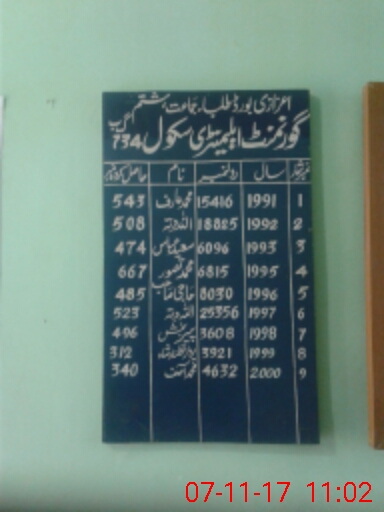 اعزازی بورڈ طلباء جماعت ہشتم
گورنمنٹ ایلیمنٹری سکول 734 گ ب
نمبر شمار سال رولنمبر نام حاصل کردہ نمبر
1 1991 15416 محمد عارف 543
2 1992 18825 اللہ دتہ 508
3 1993 6096 سعید عباس 474
4 1995 6815 محمد منصور 667
5 1996 8030 485
6 1997 25356 اللہ دتہ 523
7 1998 3608 496
8 1999 3921 312
9 2000 4632 محمد آصف 340
07-11-17 11:02